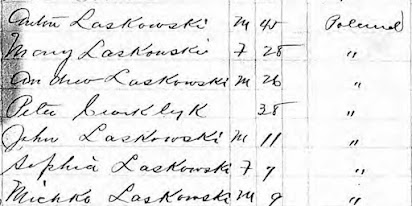 Anton Laskowski M 45 Poland
Mary Laskowski F 28 "
Andrew Laskowski M 26 "
Peter 38 "
John Laskowski M 11 "
Sophia Laskowski F 7 "
Michko Laskowski M 9 "